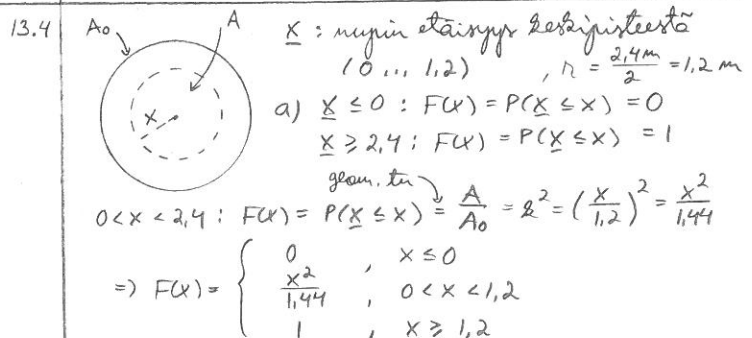 13.4 A₀ A X : nupin etäisyys keskipisteestä
(0 ... 1,2) , r = 2,4m/2 = 1,2 m
x
a) X ≤ 0 : F(x) = P(X ≤ x) = 0
X ≥ 2,4 : F(x) = P(X ≤ x) = 1
geom. tn
0 < x < 2,4 : F(x) = P(X ≤ x) = A/A₀ = k² = (x/1,2)² = x²/1,44
0 , x ≤ 0
=) F(x) = { x²/1,44 , 0 < x < 1,2
1 , x ≥ 1,2